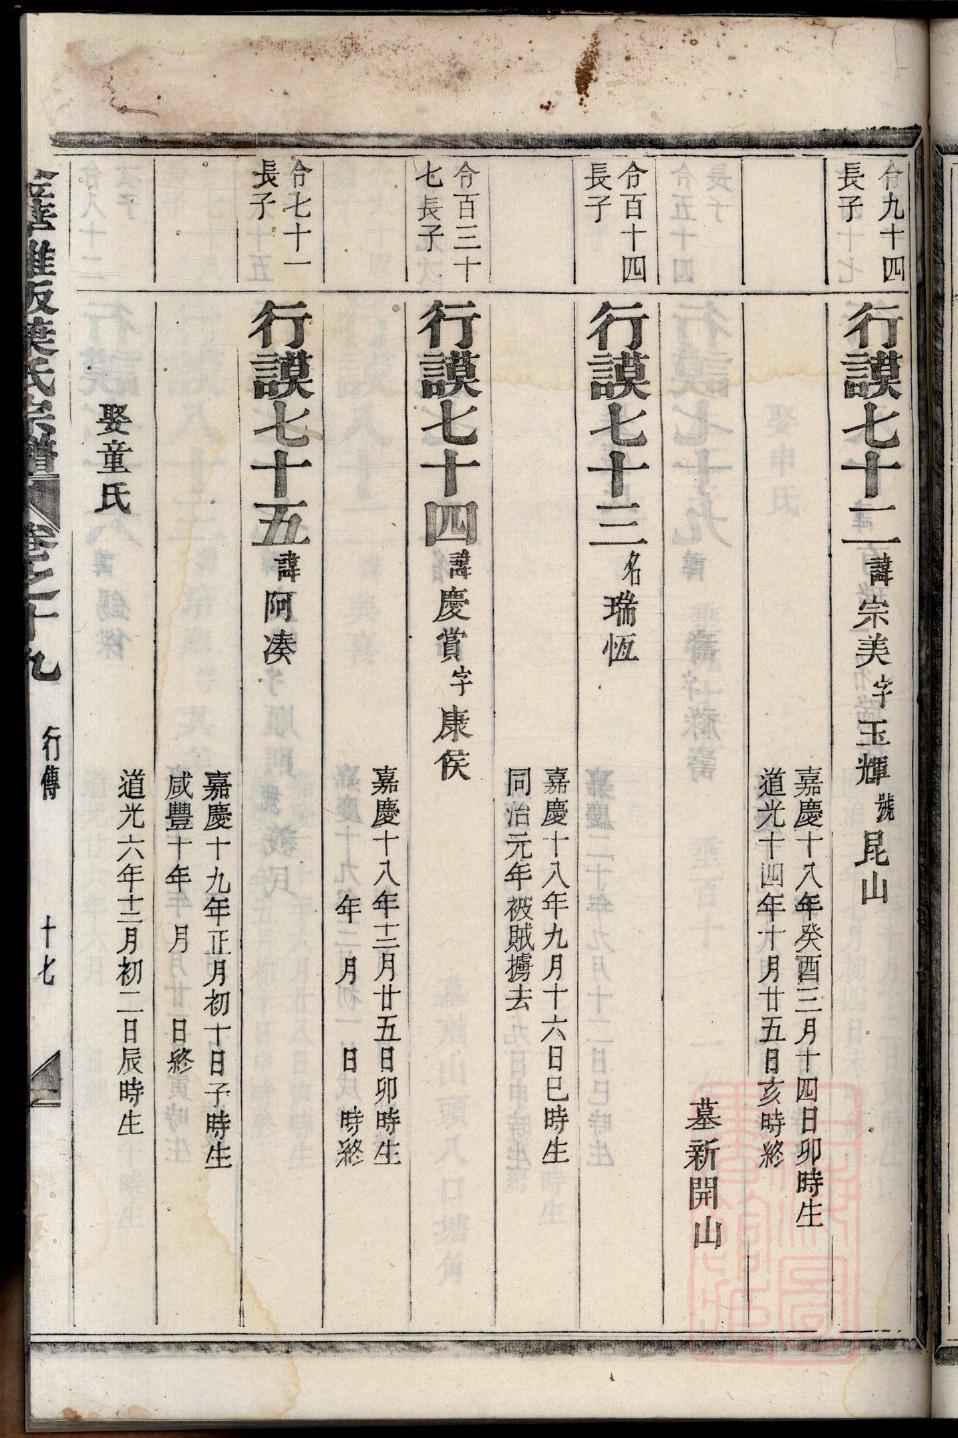 令九十四
長子
行謨七十二諱宗美字玉輝號昆山
嘉慶十八年癸酉三月十四日卯時生
道光十四年十月廿五日亥時終
墓新開山
令百十四
長子
行謨七十三名瑞恆
嘉慶十八年九月十六日巳時生
同治元年被賊擄去
令百三十
七長子
行謨七十四諱慶賞字康侯
嘉慶十八年十二月廿五日卯時生
年 月 日 時終
令七十一
長子
行謨七十五諱阿湊
嘉慶十九年正月初十日子時生
咸豐十年 月 日終
娶童氏
道光六年十二月初二日辰時生
氏宗譜 卷之十九 行傳 十七